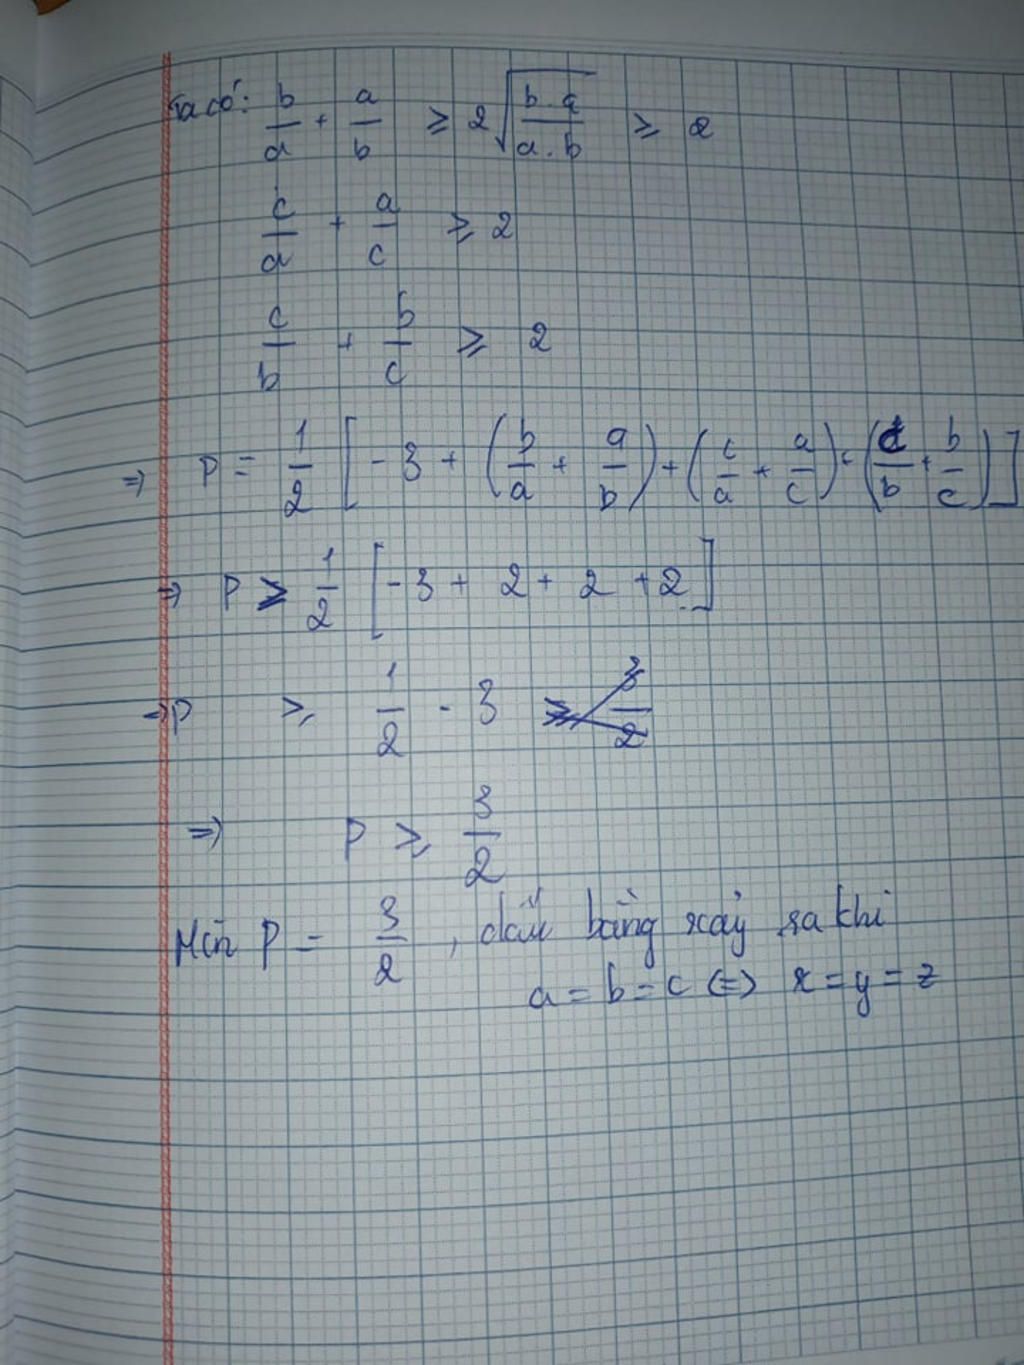 Ta có: b/a + a/b ≥ 2√(b.a/a.b) ≥ 2
c/a + a/c ≥ 2
c/b + b/c ≥ 2
=> P = 1/2 [-3 + (b/a + a/b) + (c/a + a/c) + (c/b + b/c)]
=> P ≥ 1/2 [-3 + 2 + 2 + 2]
=> P ≥ 1/2 . 3
=> P ≥ 3/2
Min P = 3/2, dấu bằng xảy ra khi
a = b = c <=> x = y = z